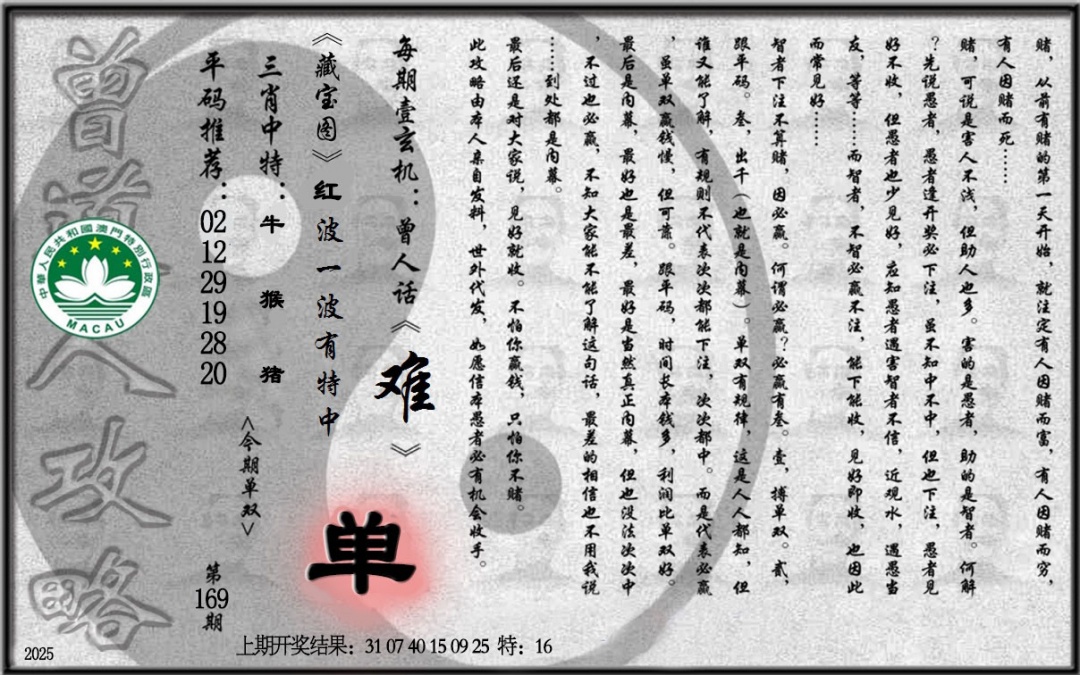 赌，从前有赌的第一天开始，就注定有人因赌而富，有人因赌而穷，
有人因赌而死……
赌，可说是害人不浅，但助人也多。害的是愚者，助的是智者。何解
？先说愚者，愚者逢开奖必下注，虽不知中不中，但也下注，愚者见
好不收，但愚者也少见好，应知愚者遇害智者不信，近观水，遇愚当
友，等等……而智者，不智必赢不注，能下能收，见好即收，也因此
而常见好……
智者下注不算赌，因必赢。何谓必赢？必赢有叁。壹，搏单双。贰，
跟平码。叁，出千（也就是内幕）。单双有规律，这是人人都知，但
谁又能了解，有规则不代表次次都能下注，次次都中。而是代表必赢
，虽单双赢钱慢，但可靠。跟平码，时间长本钱多，利润比单双好。
最后是内幕，最好也是最差，最好是当然真正内幕，但也没法次次中
，不过也必赢，不知大家能不能了解这句话，最差的相信也不用我说
……到处都是内幕。
最后还是对大家说，见好就收。不怕你赢钱，只怕你不赌。
此攻略由本人亲自发料，世外代发，如愿信本愚者必有机会收手。
每期壹玄机：曾人话《难》
《藏宝图》红波一波有特中
单
三肖中特：牛 猴 猪
<今期单双>
平码推荐：02 12 29 19 28 20
第169期
曾道人攻略
中華人民共和國澳門特別行政區
MACAU
上期开奖结果：31 07 40 15 09 25 特：16
2025